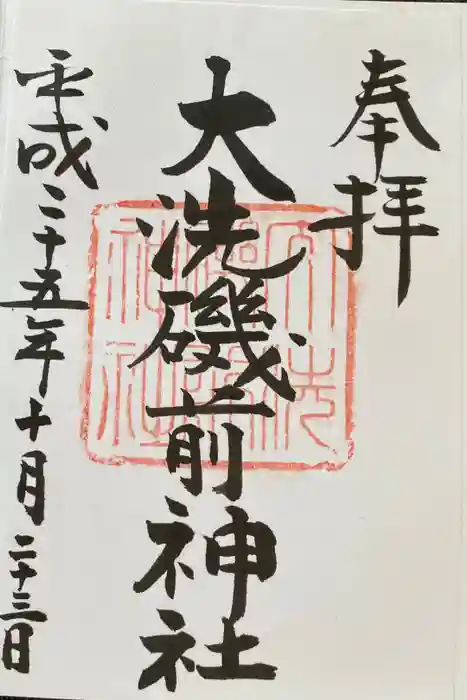 奉拝
大洗磯前神社
平成二十五年十月二十三日